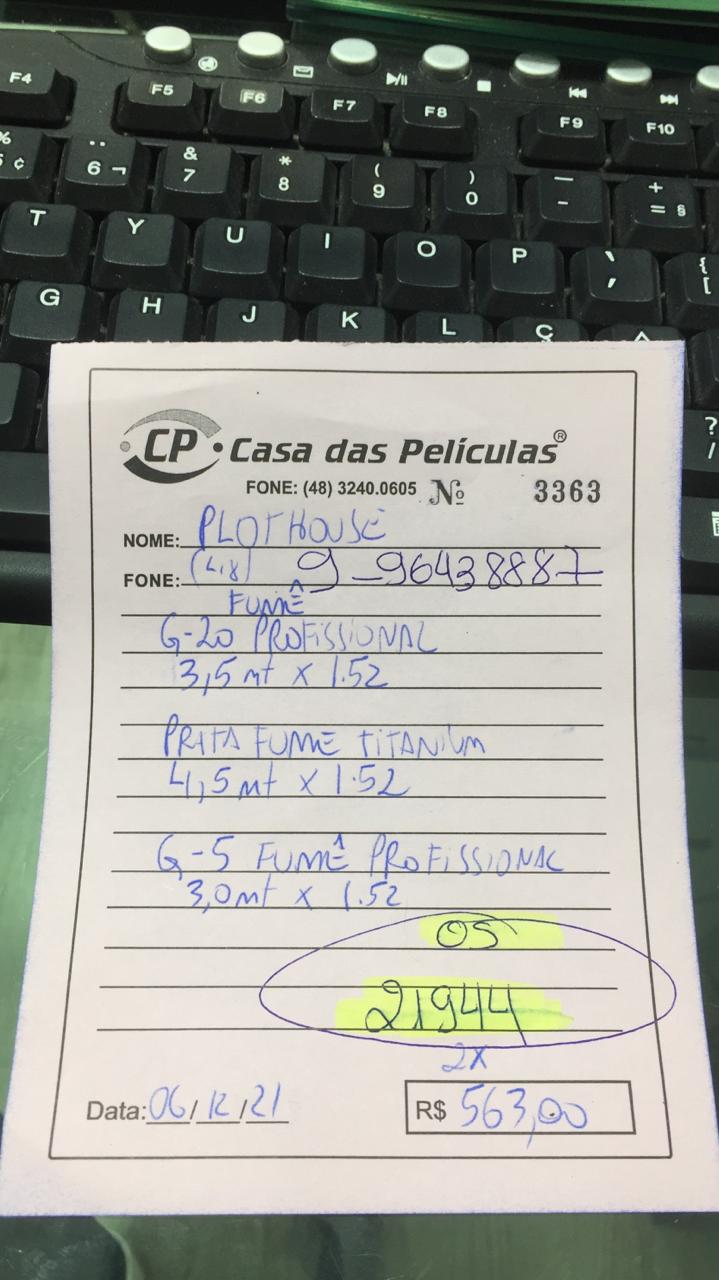 F4 F5 F6 F7 F8 F9 F10
% 5 ¢ 6 ¬ & 7 * 8 ( 9 ) 0 — - + = §
T Y U I O P ` ´ { [
G H J K L Ç ^
? /
CP Casa das Películas®
FONE: (48) 3240.0605 Nº 3363
NOME: PLOTHOUSE
FONE: (48) 9-96438887
FUMÊ
G-20 PROFISSIONAL
3,5 mt x 1.52
PRATA FUME TITANIUM
4,5 mt x 1.52
G-5 FUMÊ PROFISSIONAL
3,0 mt x 1.52
OS
21944
2x
Data: 06/12/21 R$ 563,00